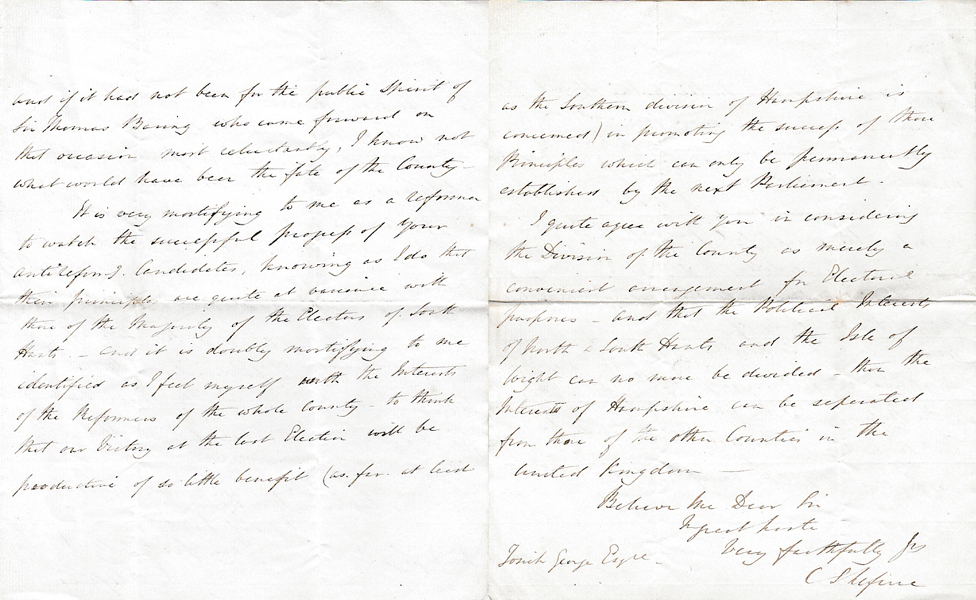 and if it had not been for the public Spirit of
Sir Thomas Baring who came forward on
that occasion most reluctantly, I know not
what would have been the fate of the County -
It is very mortifying to me as a reformer
to watch the successful progress of Your
antireforming Candidates, knowing as I do that
their principles are quite at variance with
those of the Majority of the Electors of South
Hants - and it is doubly mortifying to me
identified as I feel myself with the Interests
of the Reformers of the whole County - to think
that our Victory at the last Election will be
productive of so little benefit (as far at least
as the Southern division of Hampshire is
concerned) in promoting the success of those
Principles which can only be permanently
established by the next Parliament.
I quite agree with You in considering
the Division of the County as merely a
convenient arrangement for Electoral
purposes - and that the Political Interests
of North & South Hants and the Isle of
Wight can no more be divided - than the
Interests of Hampshire can be seperated
from those of the other Counties in the
United Kingdom -
Believe Me Dear Sir
In great haste
Very faithfully Yrs
Esqre C S Lefevre